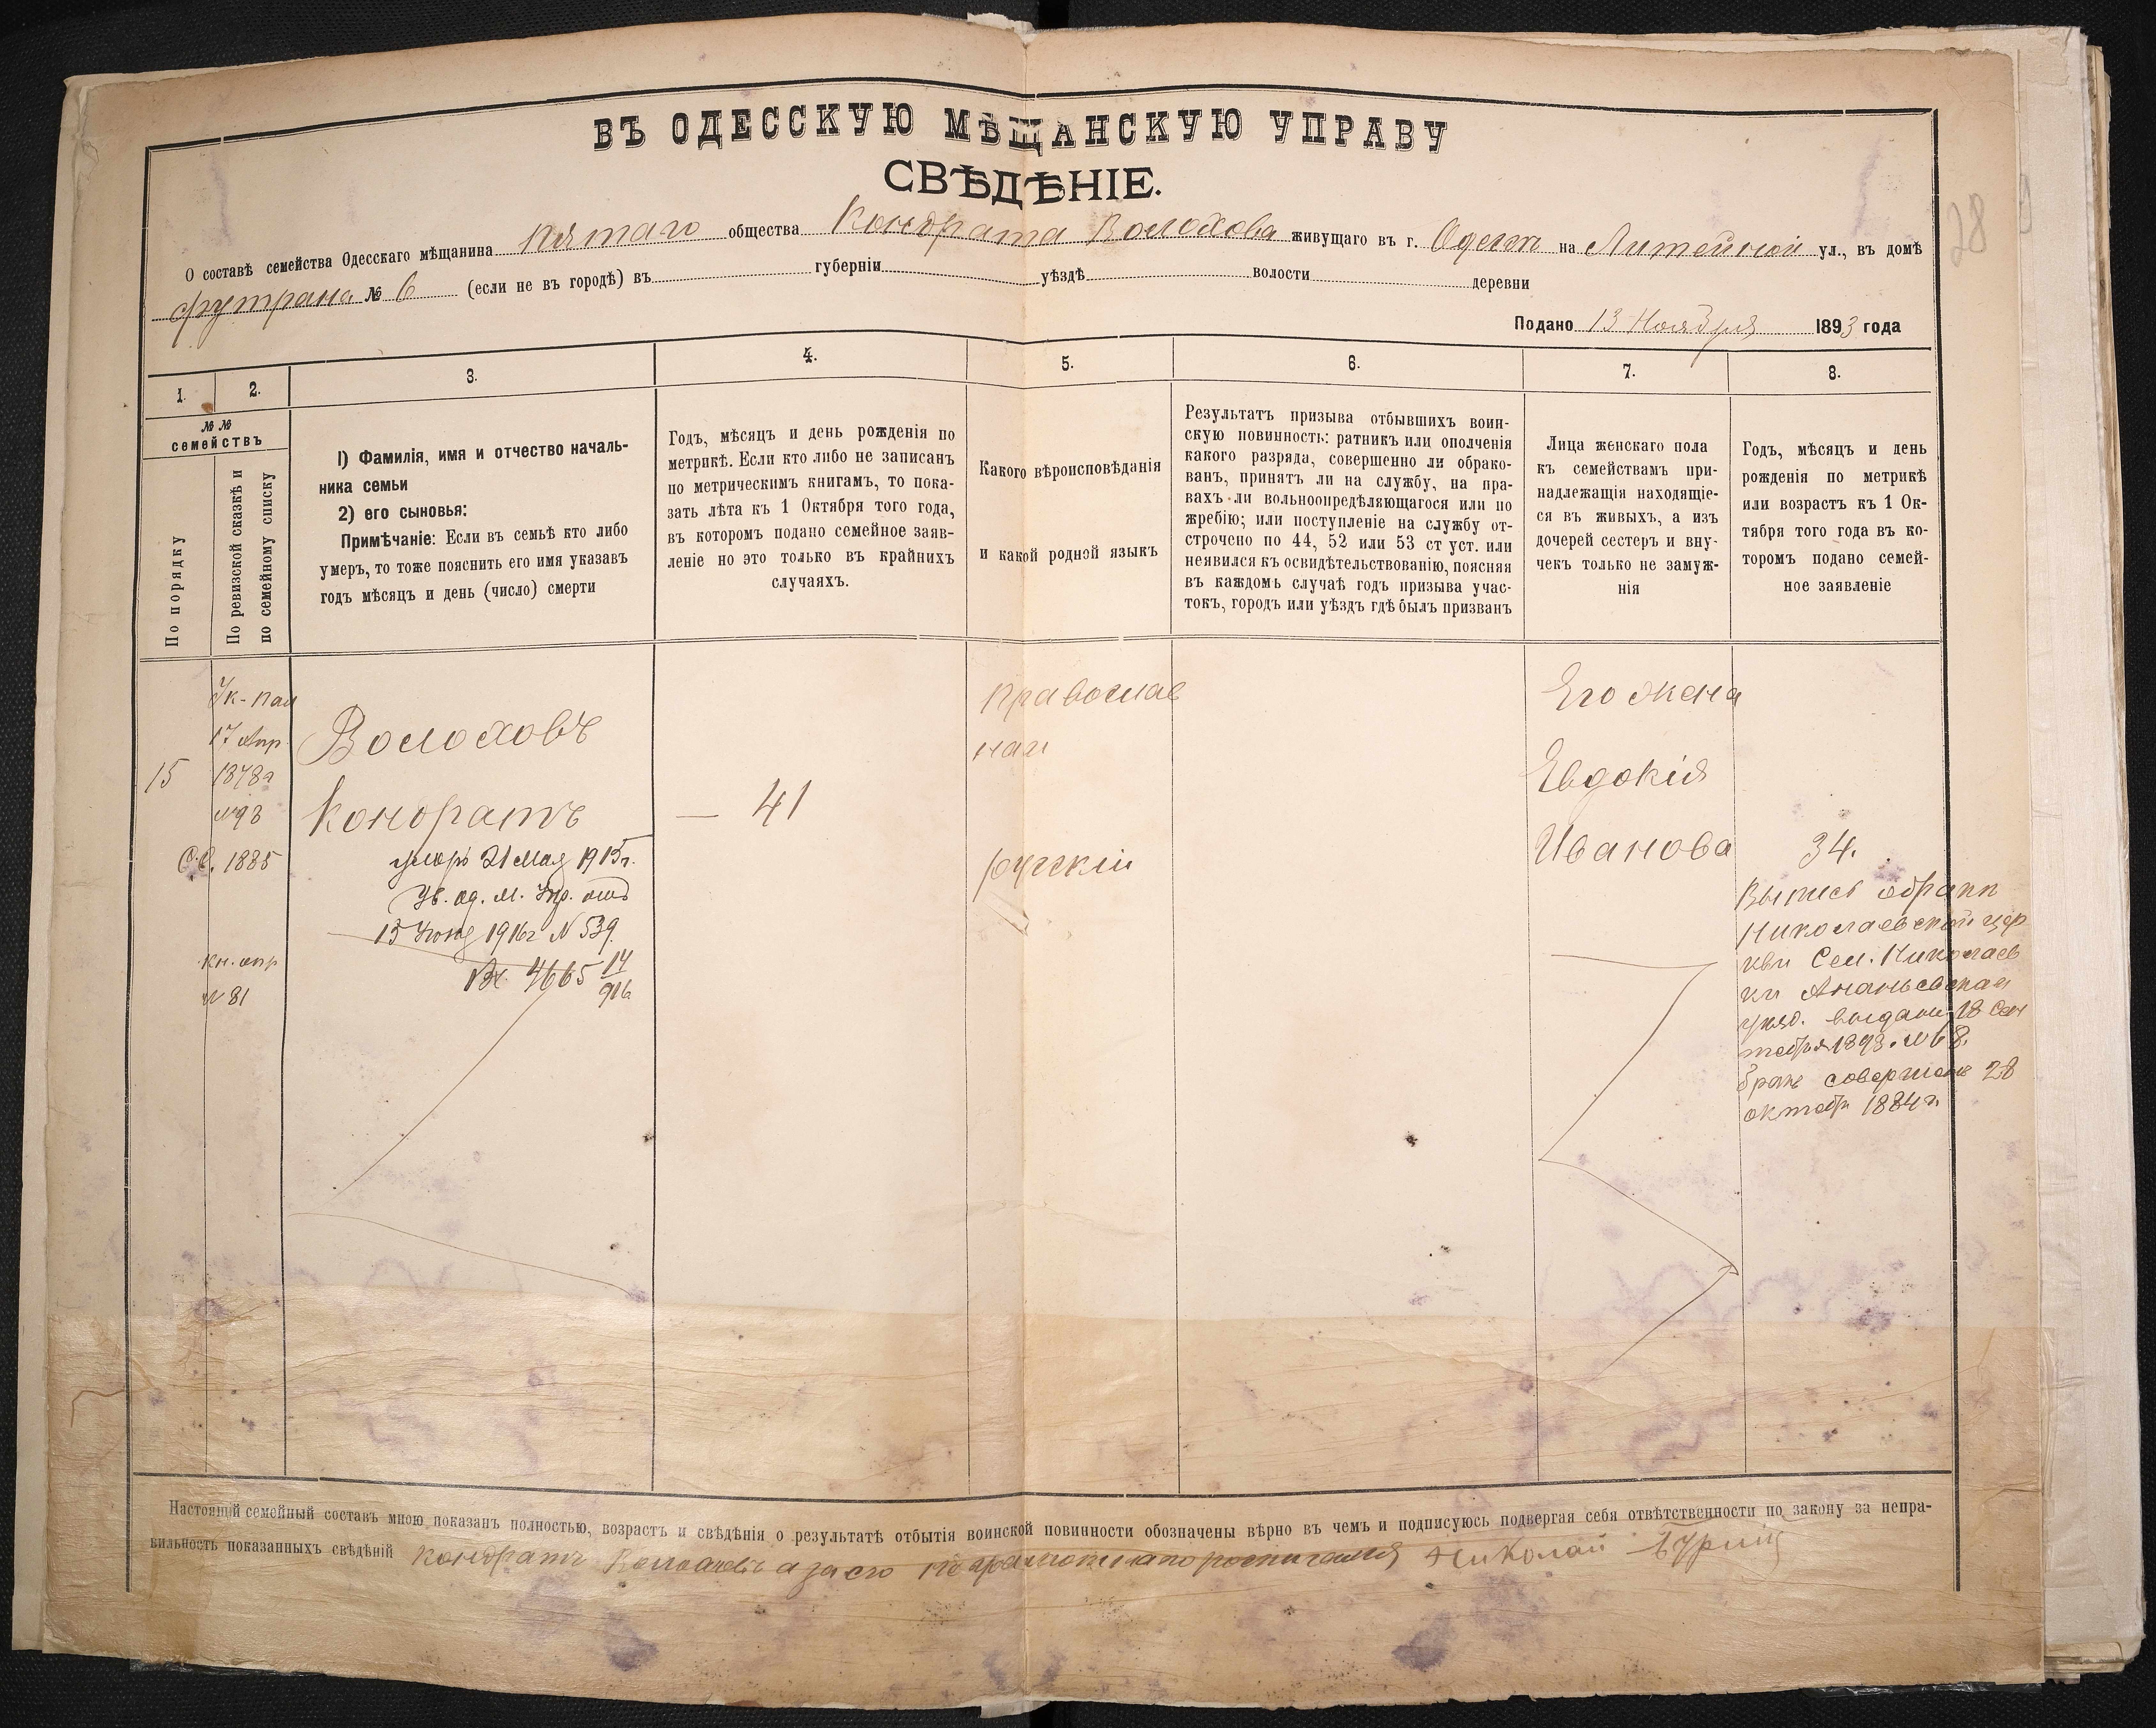 ВЪ ОДЕССКУЮ МѢЩАНСКУЮ УПРАВУ
СВѢДѢНІЕ.
О составѣ семейства Одесскаго мѣщанина Пятаго общества Кондрата Волохова живущаго въ г. Одессѣ на Литейной ул., въ домѣ
№ 6 (если не въ городѣ) въ губерніи уѣздѣ волости деревни
Подано 13 Ноября 1893 года
1. 2. 3. 4. 5. 6. 7. 8.
№№
семействъ
По порядку
По ревизской сказкѣ и
по семейному списку
1) Фамилія, имя и отчество началь-
ника семьи
2) его сыновья:
Примѣчаніе: Если въ семьѣ кто либо
умеръ, то тоже пояснить его имя указавъ
годъ мѣсяцъ и день (число) смерти
Годъ, мѣсяцъ и день рожденія по
метрикѣ. Если кто либо не записанъ
по метрическимъ книгамъ, то пока-
зать лѣта къ 1 Октября того года,
въ которомъ подано семейное заяв-
леніе но это только въ крайнихъ
случаяхъ.
Какого вѣроисповѣданія
и какой родной языкъ
Результатъ призыва отбывшихъ воин-
скую повинность: ратникъ или ополченія
какого разряда, совершенно ли обрако-
ванъ, принятъ ли на службу, на пра-
вахъ ли вольноопредѣляющагося или по
жребію; или поступленіе на службу от-
строчено по 44, 52 или 53 ст уст. или
неявился къ освидѣтельствованію, поясняя
въ каждомъ случаѣ годъ призыва учас-
токъ, городъ или уѣздъ гдѣ былъ призванъ
Лица женскаго пола
къ семействамъ при-
надлежащія находящіе-
ся въ живыхъ, а изъ
дочерей сестеръ и вну-
чекъ только не замуж-
нія
Годъ, мѣсяцъ и день
рожденія по метрикѣ
или возрастъ къ 1 Ок-
тября того года въ ко-
торомъ подано семей-
ное заявленіе
15
Ук. Пал
17 Апр
1878г
№93
1885
№ 81
Волоховъ
Кондратъ
умеръ 21 Мая 1915г.
Ув. Од. М. Упр. отъ
15 Іюня 1916г N 539.
Вх. 4665 14/916
— 41
православ
ная
русскій
Его жена
Евдокія
Иванова
34.
Выпись о бракѣ
Николаевской цер
кви Сел. Николаев
ки Ананьевскаго
уѣзд. выдана 18 Сен
тября 1893. №68.
бракъ совершенъ 28
октябр 1884г.
Настоящій семейный составъ мною показанъ полностью, возрастъ и свѣдѣнія о результатѣ отбытія воинской повинности обозначены вѣрно въ чемъ и подписуюсь подвергая себя отвѣтственности по закону за непра-
вильность показанныхъ свѣдѣній Кондратъ Волоховъ а за его неграмотнаго росписался Николай
28